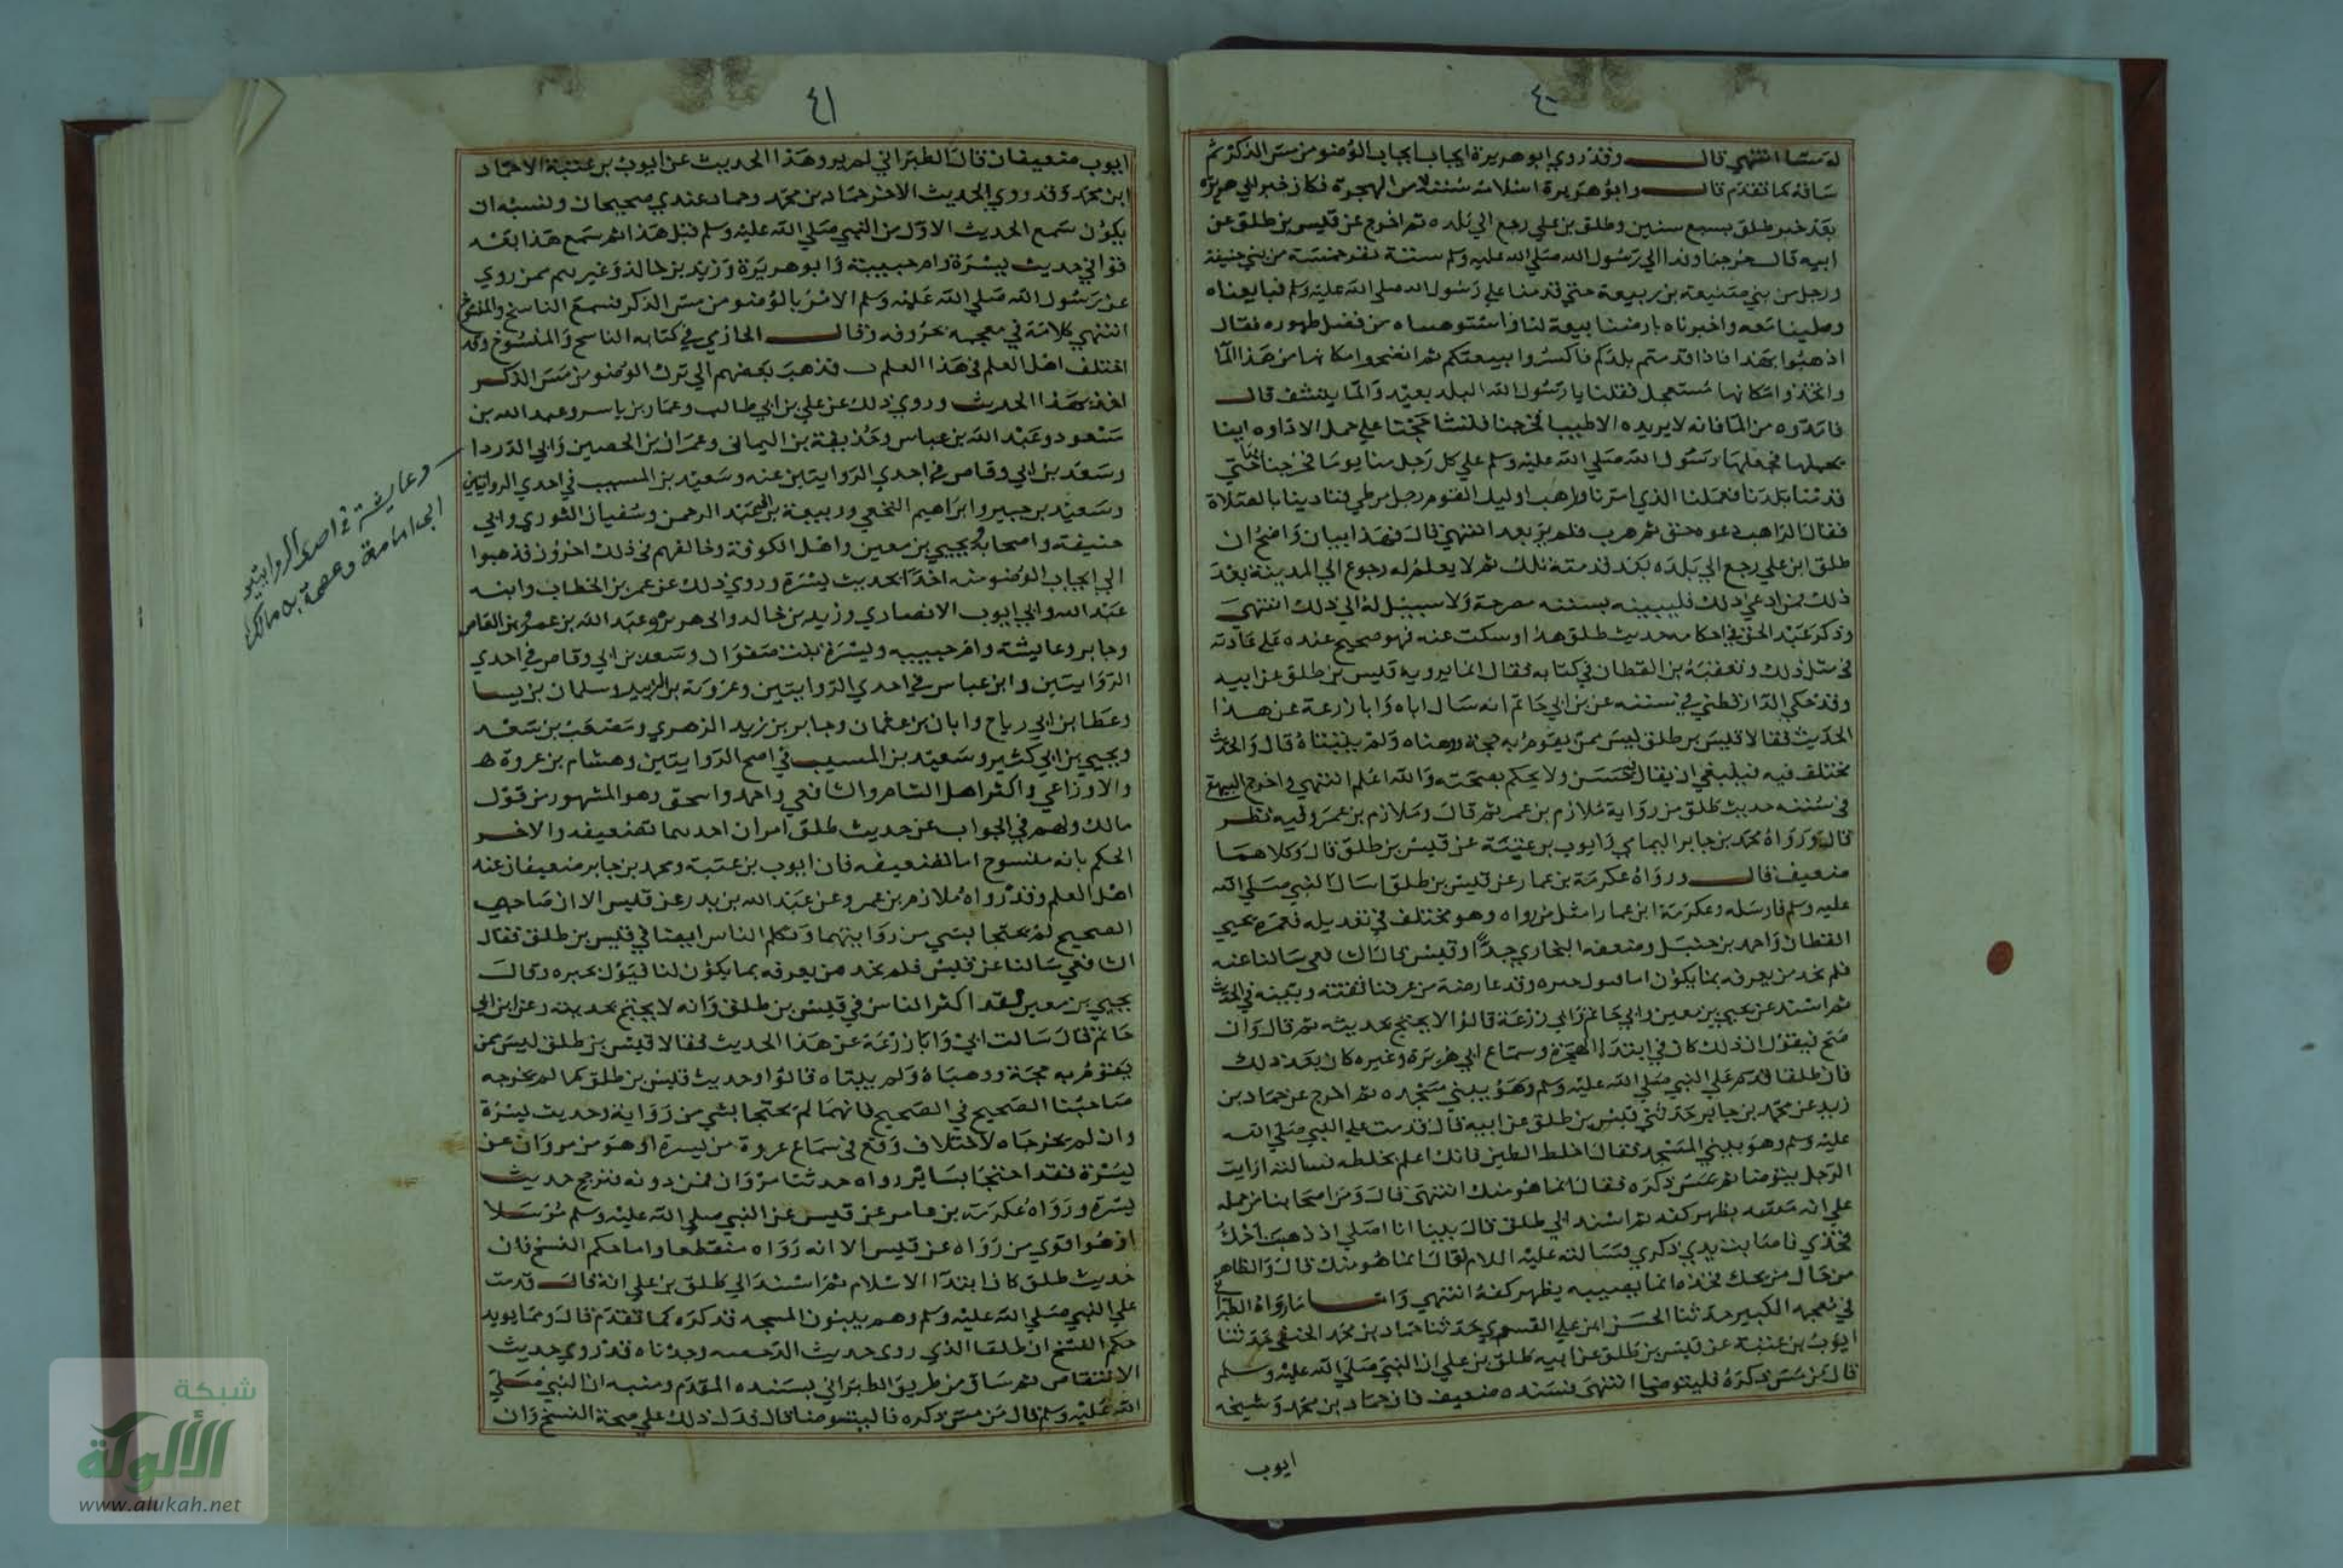 ٤٠
له مسا انتهي قال وقد روي ابو هريرة ايجاب الوضو من مس الذكر ثم
ساقه كما تقدم قال وابو هريرة اسلامه سنة من الهجرة فكان خبر ابي هريرة
بعد خبر طلق بسبع سنين وطلق بن علي رجع الي بلده ثم اخرج عن قيس بن طلق عن
ابيه قال خرجنا وفدا الي رسول الله صلي الله عليه وسلم ستة نفر خمسة من بني حنيفة
ورجل من بني ضبيعة بن ربيعة حتي قدمنا علي رسول الله صلي الله عليه وسلم فبايعناه
وصلينا معه واخبرناه بارضنا بيعة لنا واستوهبناه من فضل طهوره فقال
اذهبوا بهذا فاذا قدمتم بلدكم فاكسروا بيعتكم ثم انضحوا مكانها من هذا الما
واتخذوا مكانها مسجد فقلنا يا رسول الله البلد بعيد والما ينشف قال
فامدوه من الما فانه لا يزيده الا طيبا فخرجنا فتشاححنا علي حمل الاداوه اينا
يحملها فجعلها رسول الله صلي الله عليه وسلم علي كل رجل منا يوما فخرجنا بها حتي
قدمنا بلدنا فعملنا الذي امرنا وراهب اوليك القوم رجل من طي فنادينا بالصلاة
فقال الراهب دعوة حق ثم هرب فلم ير بعد انتهي قال فهذا بيان واضح ان
طلق ابن علي رجع الي بلده بعد قدمته تلك ثم لا يعلم له رجوع الي المدينة بعد
ذلك فمن ادعي ذلك فليبينه بسنة مصرحة ولا سبيل له الي ذلك انتهي
وذكر عبد الحق في احكامه حديث طلق هذا وسكت عنه فهو صحيح عنده علي عادته
في مثل ذلك وتعقبه بن القطان في كتابه فقال انما يرويه قيس بن طلق عن ابيه
وقد حكي الدارقطني في سننه عن بن ابي حاتم انه سال اباه وابا زرعة عن هذا
الحديث فقالا قيس بن طلق ليس ممن يقوم به حجة ووهناه ولم يثبتاه قال والحديث
مختلف فيه فينبغي ان يقال حسن ولا يحكم بصحته والله اعلم انتهي واخرج البيهقي
في سننه حديث طلق من رواية ملازم بن عمر ثم قال وملازم بن عمرو فيه نظر
قال ورواه محمد بن جابر اليمامي وايوب بن عتبة عن قيس بن طلق قال وكلاهما
ضعيف قال ورواه عكرمة بن عمار عن قيس بن طلق سال النبي صلي الله
عليه وسلم فارسله وعكرمة ابن عمار امثل من رواه وهو مختلف في تعديله فغمزه يحيي
القطان واحمد بن حنبل وضعفه البخاري جدا وقيس قال سالنا عنه
فلم نجد من يعرفه بما يكون وقد عارضه من عرفنا ثقته وثبته في الحديث
ثم اسند عن يحيي بن معين وابي حاتم وابي زرعة قالوا لا يحتج بحديثه ثم قال وان
صح فيقول ان ذلك كان في ابتدا الهجرة وسماع ابي هريرة وغيره كان بعد ذلك
فان طلقا قدم علي النبي صلي الله عليه وسلم وهو يبني مسجده ثم اخرج عن حماد بن
زيد عن محمد بن جابر حدثني قيس بن طلق عن ابيه قال قدمت علي النبي صلي الله
عليه وسلم وهو يبني المسجد فقال اخلط الطين فانك اعلم بخلطه فسالته ارايت
الرجل يتوضا ثم يمس ذكره فقال انما هو منك انتهي قال ومن اصحابنا من حمله
علي انه مسه بظهر كفه ثم اسند الي طلق قال بينا انا اصلي اذ ذهبت احك
فخذي فاصابت يدي ذكري فسالته عليه السلام فقال انما هو منك قال والظاهر
من حال من يحك فخذه انما يصيبه بظهر كفه انتهي واما ما رواه الطبراني
في معجمه الكبير حدثنا الحسن ابن علي القسوي حدثنا حماد بن محمد الحنفي حدثنا
ايوب بن عتبة عن قيس بن طلق عن ابيه طلق بن علي ان النبي صلي الله عليه وسلم
قال من مس ذكره فليتوضا انتهي فسنده ضعيف فان حماد بن محمد وشيخه
ايوب
٤١
ايوب ضعيفان قال الطبراني لم يرو هذا الحديث عن ايوب بن عتبة الا حماد
ابن محمد وقد روي الحديث الاخر حماد بن محمد وهما عندي صحيحان ونسبه ان
يكون سمع الحديث الاول من النبي صلي الله عليه وسلم قبل هذا ثم سمع هذا بعد
فوافي حديث بسرة وام حبيبة وابو هريرة وزيد بن خالد وغيرهم ممن روي
عن رسول الله صلي الله عليه وسلم الامر بالوضو من مس الذكر فسمع الناسخ والمنسوخ
انتهي كلامه في معجمه بحروفه وقال الحازمي في كتابه الناسخ والمنسوخ وقد
اختلف اهل العلم في هذا العلم فذهب بعضهم الي ترك الوضو من مس الذكر
اخذ بهذا الحديث وروي ذلك عن علي بن ابي طالب وعمار بن ياسر وعبد الله بن
مسعود وعبد الله بن عباس وحذيفة بن اليماني وعمران بن الحصين وابي الدردا
وسعد بن ابي وقاص في احدي الروايتين عنه وسعيد بن المسيب في احدي الروايتين
وسعيد بن جبير وابراهيم النخعي وربيعة بن عبد الرحمن وسفيان الثوري وابي
حنيفة واصحابه ويحيي بن معين واهل الكوفة وخالفهم في ذلك اخرون فذهبوا
الي ايجاب الوضو منه اخذا بحديث بسرة وروي ذلك عن عمر بن الخطاب وابنه
عبد الله وابي ايوب الانصاري وزيد بن خالد وابي هريرة وعبد الله بن عمرو بن العاص
وجابر وعايشة وام حبيبه وبسرة بنت صفوان وسعد بن ابي وقاص في احدي
الروايتين وابن عباس في احدي الروايتين وعروة بن الزبير وسلمان بن يسار
وعطا بن ابي رباح وابان بن عثمان وجابر بن زيد الزهري ومصعب بن سعد
ويحيي بن ابي كثير وسعيد بن المسيب في اصح الروايتين وهشام بن عروة
والاوزاعي واكثر اهل الشام والشافعي واحمد واسحق وهو المشهور من قول
مالك ولهم في الجواب عن حديث طلق امران احدهما تضعيفه والاخر
الحكم بانه منسوخ اما تضعيفه فان ايوب بن عتبة ومحمد بن جابر ضعيفان عند
اهل العلم وقد رواه ملازم بن عمرو عن عبد الله بن بدر عن قيس الا ان صاحبي
الصحيح لم يحتجا بشي من روايتهما وتكلم الناس ايضا في قيس بن طلق فقال
الشافعي سالنا عن قيس فلم نجد من يعرفه بما يكون لنا قبول خبره وقال
يحيي بن معين لقد اكثر الناس في قيس بن طلق وانه لا يحتج بحديثه وعن ابن ابي
حاتم قال سالت ابي وابا زرعة عن هذا الحديث فقالا قيس بن طلق ليس ممن
يقوم به حجة ووهناه ولم يثبتاه قالوا وحديث قيس بن طلق كما لم يخرجه
صاحبنا الصحيح في الصحيح فانهما لم يحتجا بشي من رواية وحديث بسرة
وان لم يخرجاه لاختلاف وقع في سماع عروة من بسرة او هو من مروان عن
بسرة فقد احتجا بسائر رواه حدثنا مروان فمن دونه فترجح حديث
بسرة ورواه عكرمة بن عامر عن قيس عن النبي صلي الله عليه وسلم مرسلا
وهو اقوي من رواه عن قيس الا انه رواه منقطعا واما حكم النسخ فان
حديث طلق كان ابتدا الاسلام ثم اسند الي طلق بن علي انه قال قدمت
علي النبي صلي الله عليه وسلم وهم يبنون المسجد فذكره كما تقدم قال ومما يويد
حكم النسخ ان طلقا الذي روي حديث الرخصه وجدناه قد روي حديث
الانتقاض ثم ساق من طريق الطبراني بسنده المقدم ومنه ان النبي صلي
الله عليه وسلم قال من مس ذكره فاليتوضا قال فدل ذلك علي صحة النسخ وان
وعايشة في احدي الروايتين
ابي امامة وعصمة بن مالك
شبكة
الألوكة
www.alukah.net